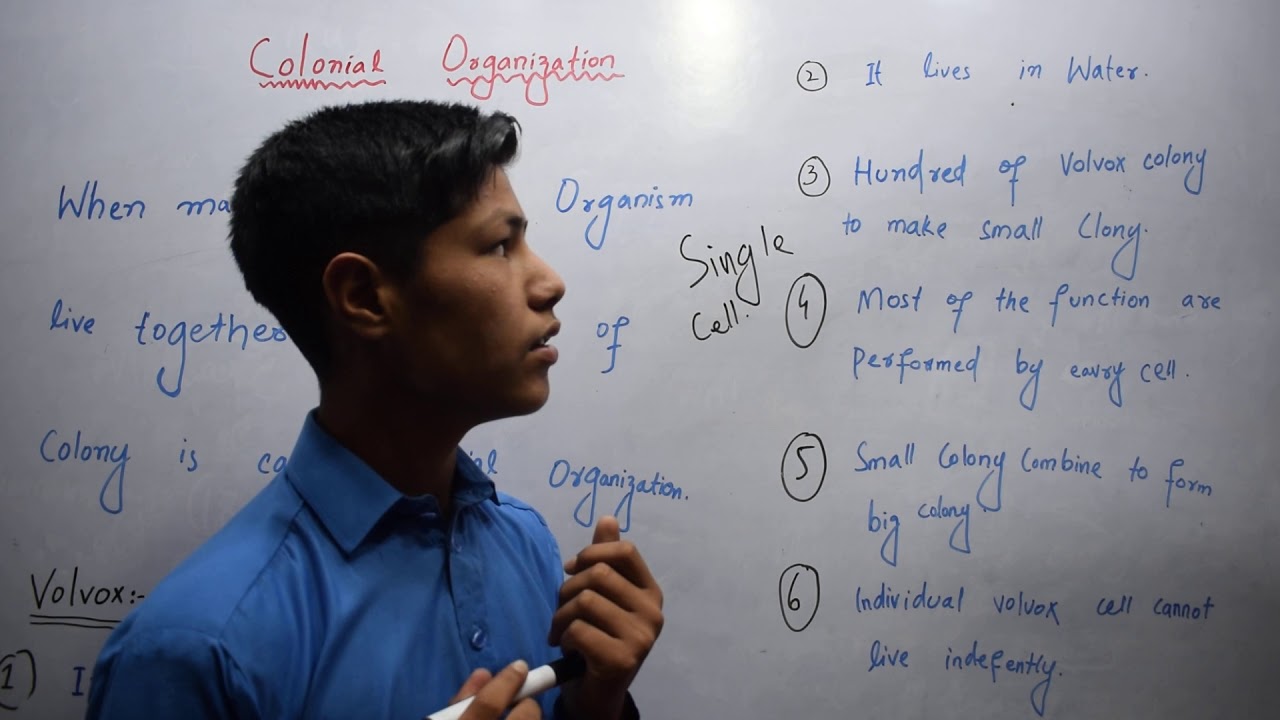 Colonial Organization
When ma Organism
live together of
Colony is co al Organization.
Volvox:-
1) I
Single
Cell.
2 It lives in Water.
3 Hundred of Volvox colony
to make small Clony.
4 Most of the function are
performed by eavry cell.
5 Small Colony Combine to form
big colony
6 Individual volvox cell cannot
live indefently.